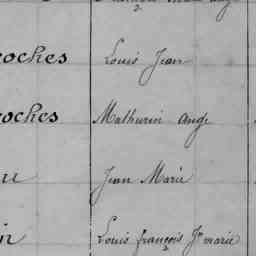 roches Louis Jean
roches Mathurin Ange
Jean Marie
in Louis françois Jh marie